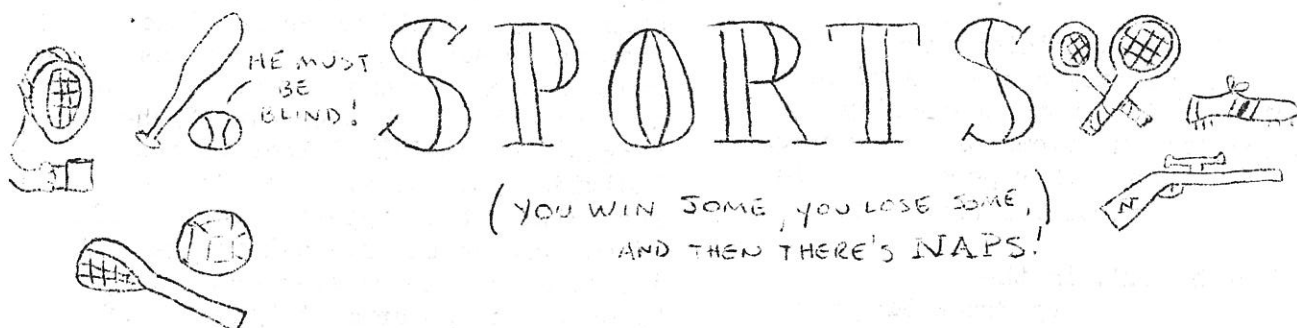 HE MUST
BE
BLIND!
SPORTS
(YOU WIN SOME, YOU LOSE SOME,)
AND THEN THERE'S NAPS!
N